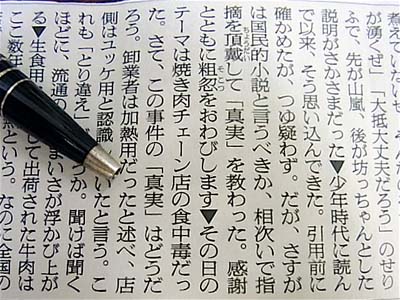 煮えていたいせ
が湧くぜ」「大抵大丈夫だろう」のせり
ふで、先が山嵐、後が坊っちゃんとした
説明がさかさまだった▼少年時代に読ん
で以来、そう思い込んできた。引用前に
確かめたが、つゆ疑わず。だが、さすが
は国民的小説と言うべきか、相次いで指
摘を頂戴して「真実」を教わった。感謝
ちょうだい
とともに粗忽をおわびします▼その日の
そこつ
テーマは焼き肉チェーン店の食中毒だっ
た。さて、この事件の「真実」はどうだ
ろう。卸業者は加熱用だったと述べ、店
側はユッケ用と認識 いたと言う。こ
れも「とり違え」 うか。聞けば聞く
ほどに、流通の まいさが浮かび上が
る▼生食用 して出荷された牛肉は
ここ数年 という。なのに全国の